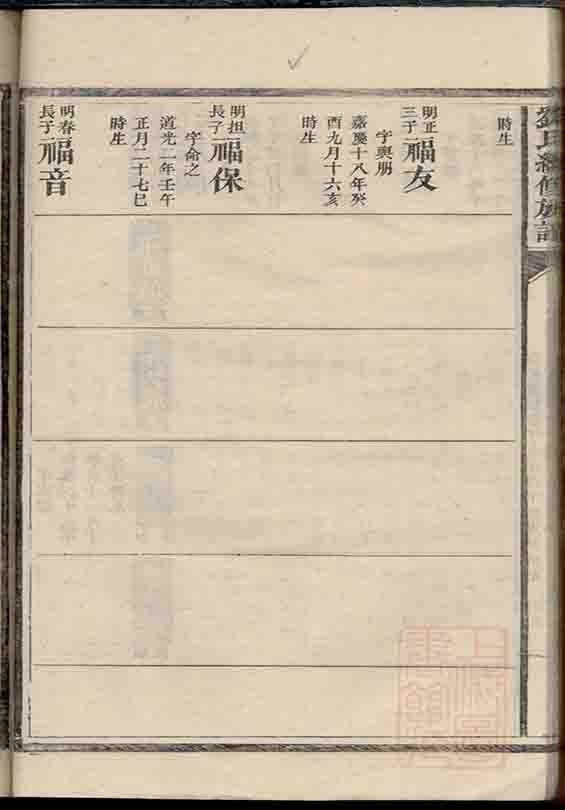 劉氏續修族譜
時生
明正
三子
福友
字興朋
嘉慶十八年癸
酉九月十六亥
時生
明担
長子
福保
字命之
道光二年壬午
正月二十七巳
時生
明春
長子
福音